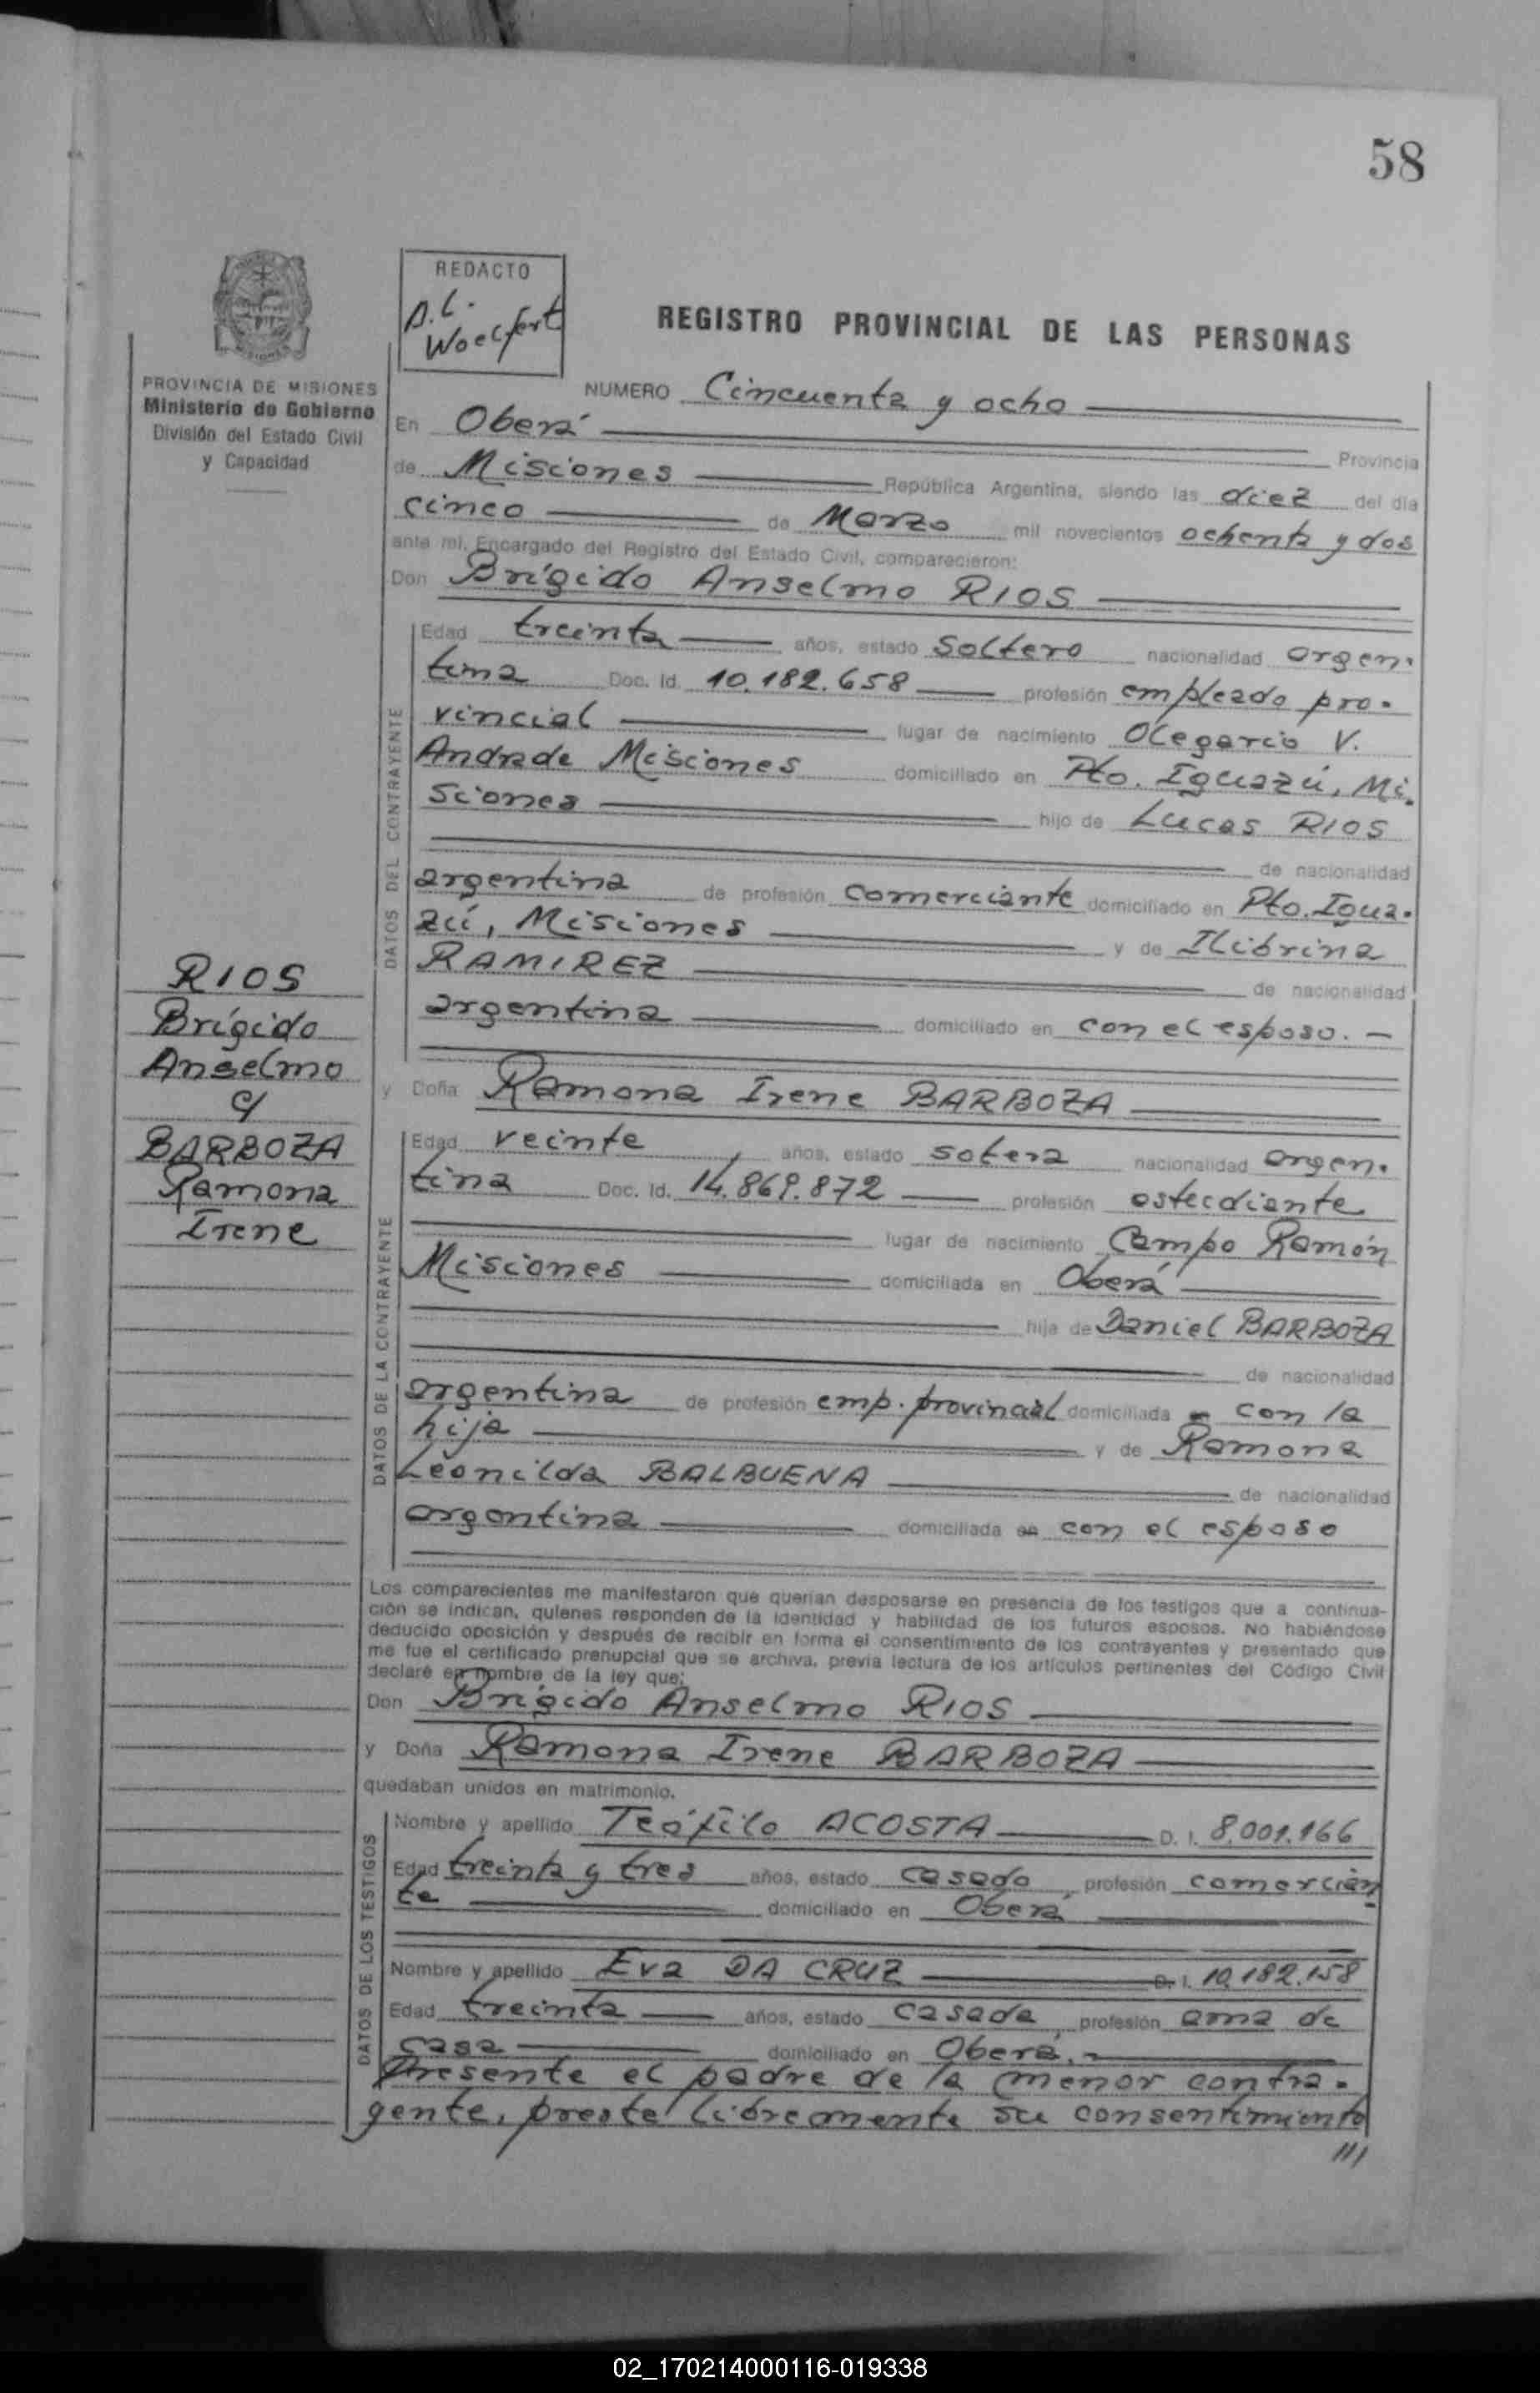 58
REDACTO
A. L.
Woelfert
REGISTRO PROVINCIAL DE LAS PERSONAS
PROVINCIA DE MISIONES
Ministerio de Gobierno
División del Estado Civil
y Capacidad
NUMERO Cincuenta y ocho
En Oberá
Provincia
de Misiones República Argentina, siendo las diez del día
cinco de Marzo mil novecientos ochenta y dos
ante mí, Encargado del Registro del Estado Civil, comparecieron:
Don Brígido Anselmo RIOS
DATOS DEL CONTRAYENTE
Edad treinta años, estado soltero nacionalidad argen-
tina Doc. Id. 10.182.658 profesión empleado pro-
vincial lugar de nacimiento Olegario V.
Andrade Misiones domiciliado en Pto. Iguazú, Mi-
siones hijo de Lucas RIOS
de nacionalidad
argentina de profesión comerciante domiciliado en Pto. Igua-
zú, Misiones y de Ilibrina
RAMIREZ de nacionalidad
argentina domiciliado en con el esposo. -
RIOS
Brígido
Anselmo
c/
BARBOZA
Ramona
Irene
y Doña Ramona Irene BARBOZA
DATOS DE LA CONTRAYENTE
Edad veinte años, estado soltera nacionalidad argen-
tina Doc. Id. 14.869.872 profesión estudiante
lugar de nacimiento Campo Ramón
Misiones domiciliada en Oberá
hija de Daniel BARBOZA
de nacionalidad
argentina de profesión emp. provincial domiciliada con la
hija y de Ramona
Leonilda BALBUENA de nacionalidad
argentina domiciliada en con el esposo
Los comparecientes me manifestaron que querían desposarse en presencia de los testigos que a continua-
ción se indican, quienes responden de la identidad y habilidad de los futuros esposos. No habiéndose
deducido oposición y después de recibir en forma el consentimiento de los contrayentes y presentado que
me fue el certificado prenupcial que se archiva, previa lectura de los artículos pertinentes del Código Civil
declaré en nombre de la ley que:
Don Brígido Anselmo RIOS
y Doña Ramona Irene BARBOZA
quedaban unidos en matrimonio.
DATOS DE LOS TESTIGOS
Nombre y apellido Teófilo ACOSTA D. I. 8.001.166
Edad treinta y tres años, estado casado profesión comercian
te domiciliado en Oberá
Nombre y apellido Eva DA CRUZ D. I. 10.182.158
Edad treinta años, estado casada profesión ama de
casa domiciliado en Oberá. -
Presente el padre de la menor contra-
yente, presta libremente su consentimiento
///
02_170214000116-019338